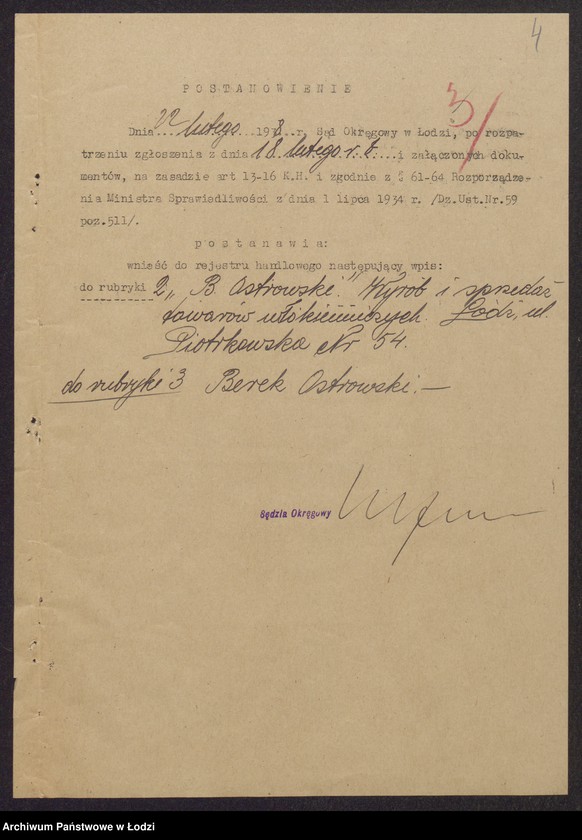 4
3/
POSTANOWIENIE
Dnia 22 lutego 1938 r. Sąd Okręgowy w Łodzi, po rozpa-
trzeniu zgłoszenia z dnia 18 lutego r.b. i załączonych doku-
mentów, na zasadzie art 13-16 K.H. i zgodnie z § 61-64 Rozporządze-
nia Ministra Sprawiedliwości z dnia 1 lipca 1934 r. /Dz.Ust.Nr.59
poz.511/.
postanawia:
wnieść do rejestru handlowego następujący wpis:
do rubryki 2 „B. Ostrowski." Wyrób i sprzedaż
towarów włókienniczych. Łódź, ul.
Piotrkowska Nr 54.
do rubryki 3 Berek Ostrowski.—
Sędzia Okręgowy
Archiwum Państwowe w Łodzi